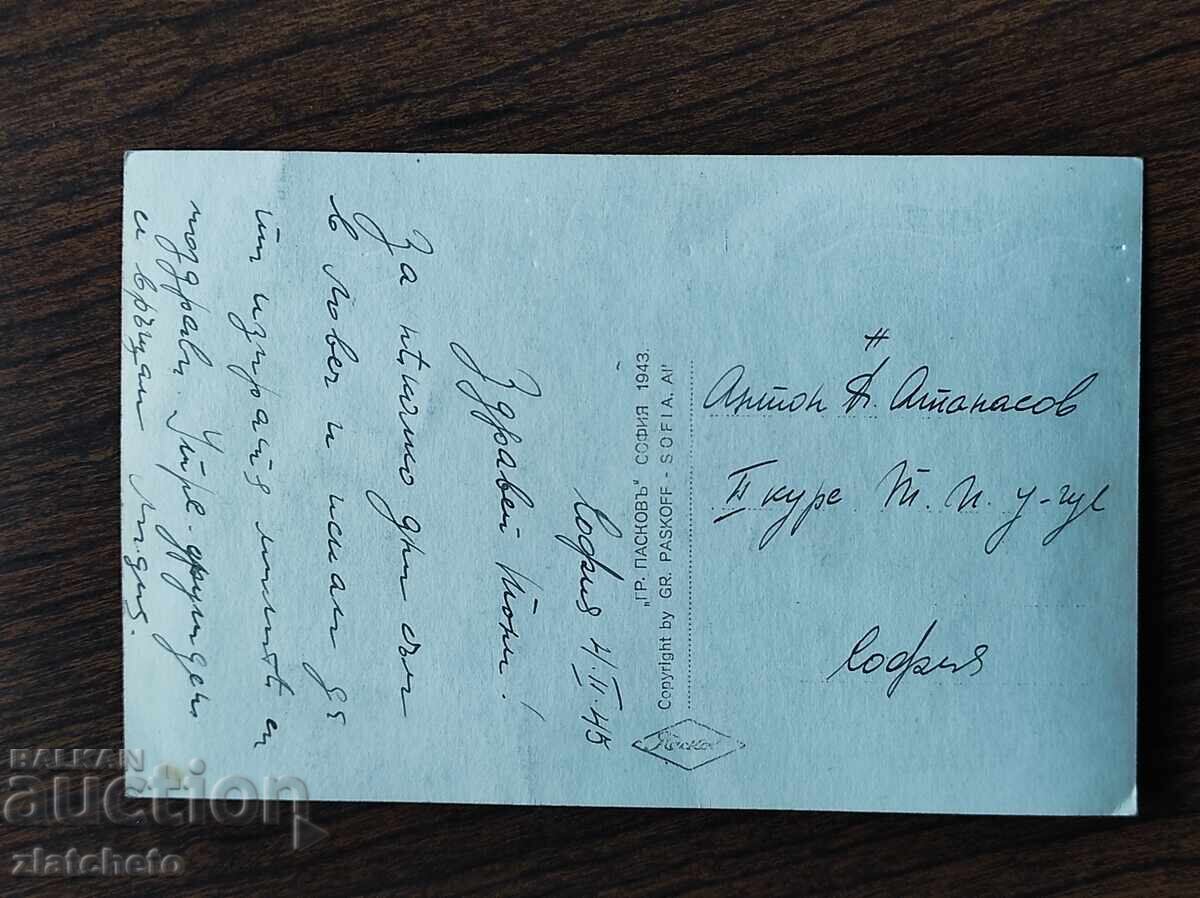 София 4.II.45
Здравей Тони!
За нѣколко дни съм
в Ловеч и искам да
ти изпратя милитѣ си
поздрави. Утре-други ден
се връщам Лидия.
„ГР. ПАСКОВЪ" СОФИЯ 1943.
Copyright by GR. PASKOFF - SOFIA. AI'
Пасков
Антон Н. Атанасов
II курс Т. П. у-ще
София
BALKAN
auction
zlatcheto